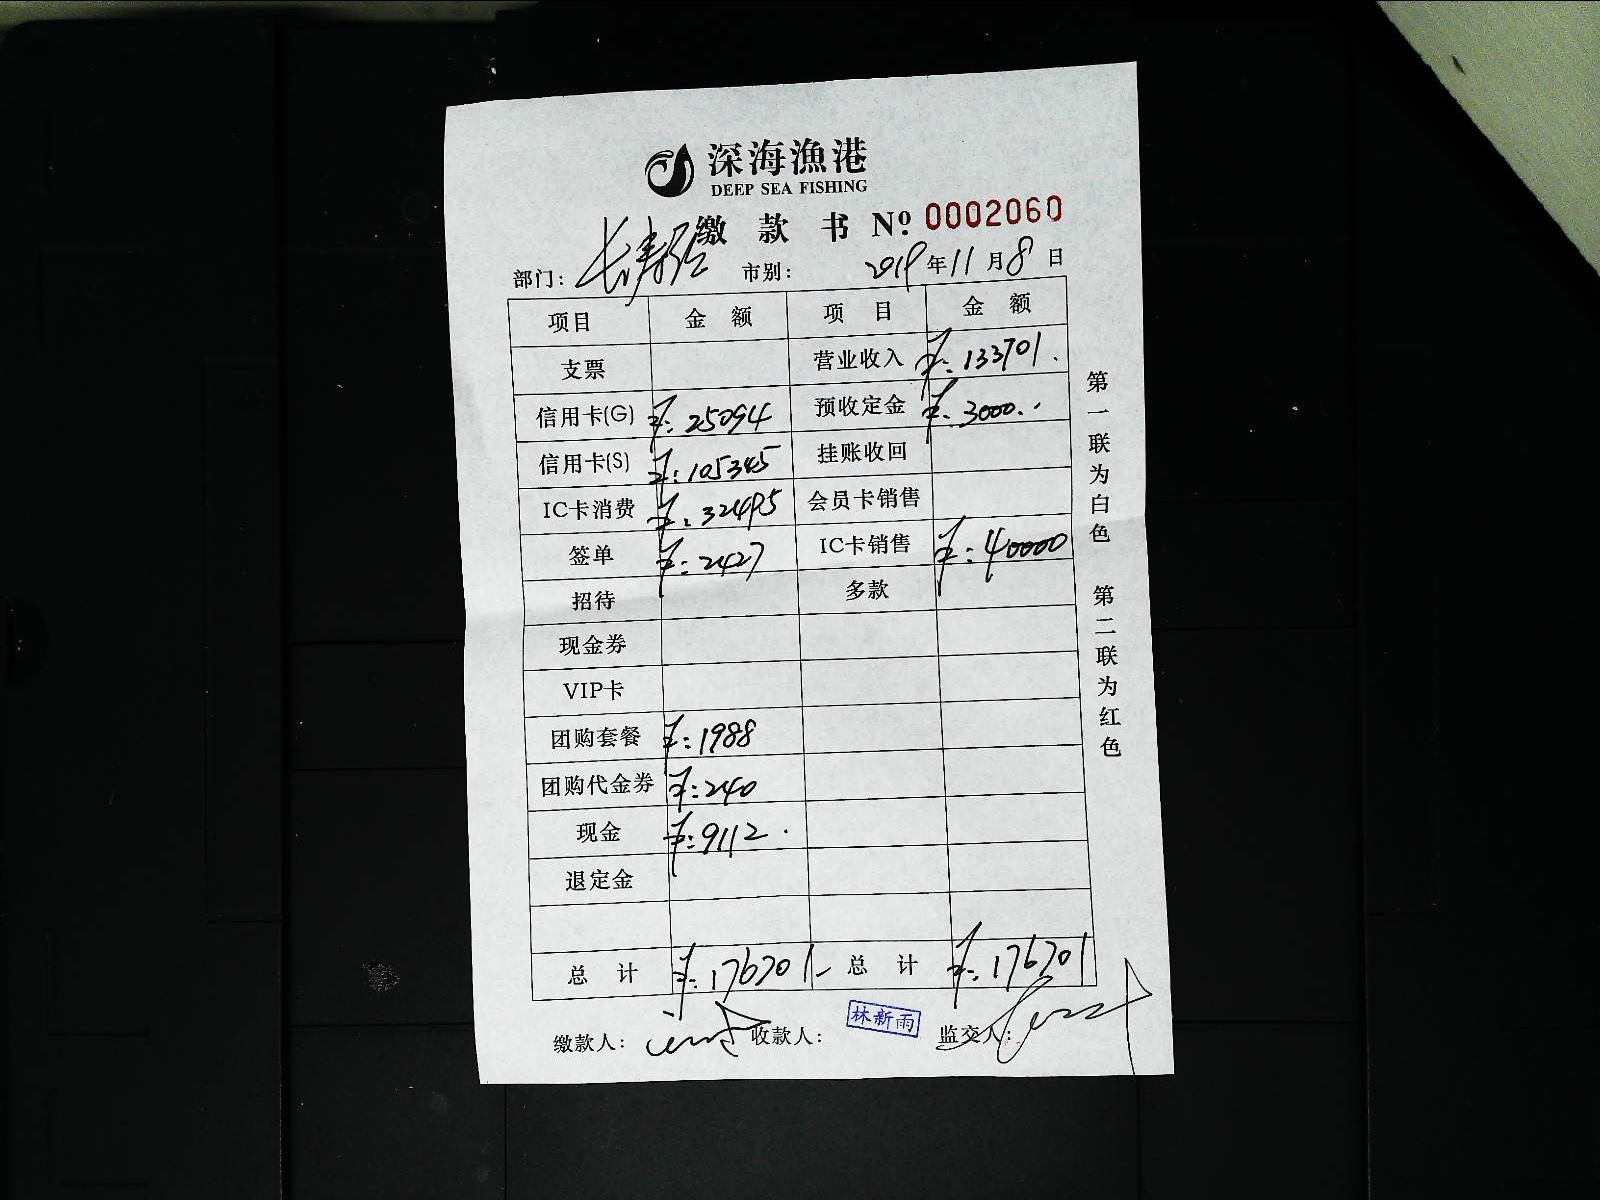 深海漁港
DEEP SEA FISHING
缴款书 Nº: 0002060
部门: 长寿路 市别: 2019年11月8日
项目 金额 项目 金额
支票 营业收入 ¥:133701.
信用卡(G) ¥:25094 预收定金 ¥:3000..
信用卡(S) ¥:105345 挂账收回
IC卡消费 ¥:32495 会员卡销售
签单 ¥:2427 IC卡销售 ¥:40000
招待 多款
现金券
VIP卡
团购套餐 ¥:1988
团购代金券 ¥:240
现金 ¥:9112.
退定金
总计 ¥:176701- 总计 ¥:176701
缴款人: 收款人: 林新雨 监交人:
第一联为白色 第二联为红色